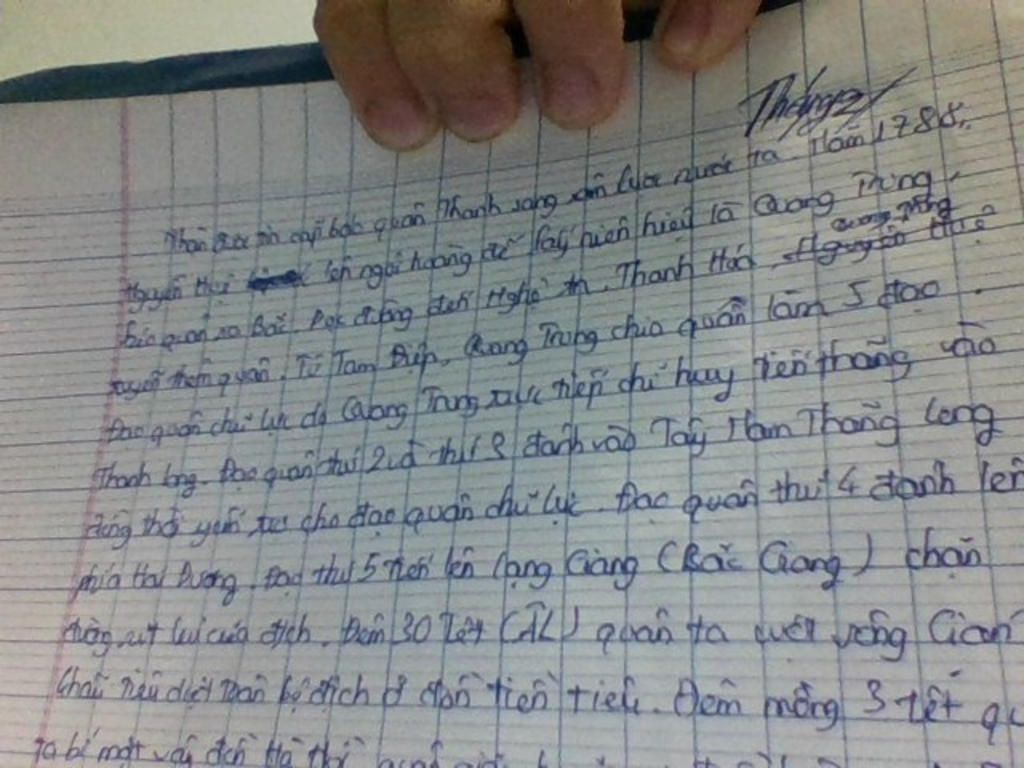 Tháng 2/
Nhận được tin cấp báo quân Thanh sang xâm lược nước ta. Năm 1788,
Nguyễn Huệ lên ngôi hoàng đế lấy niên hiệu là Quang Trung,
Quang Trung
tiến quân ra Bắc. Dọc đường đến Nghệ An, Thanh Hoá, Nguyễn Huệ
tuyển thêm quân. Từ Tam Điệp, Quang Trung chia quân làm 5 đạo.
Đạo quân chủ lực do Quang Trung trực tiếp chỉ huy tiến thẳng vào
Thanh long. Đạo quân thứ 2 và thứ 3 đánh vào Tây Nam Thăng Long
đồng thời yểm trợ cho đạo quân chủ lực. Đạo quân thứ 4 đánh lên
phía Hải Dương, Đạo thứ 5 tiến lên Lạng Giang (Bắc Giang) chặn
đường rút lui của địch. Đêm 30 Tết (ÂL) quân ta vượt sông Gián
Khẩu tiêu diệt toàn bộ địch ở đồn tiền tiêu. Đêm mồng 3 tết
ta bí mật vây đồn Hà Hồi